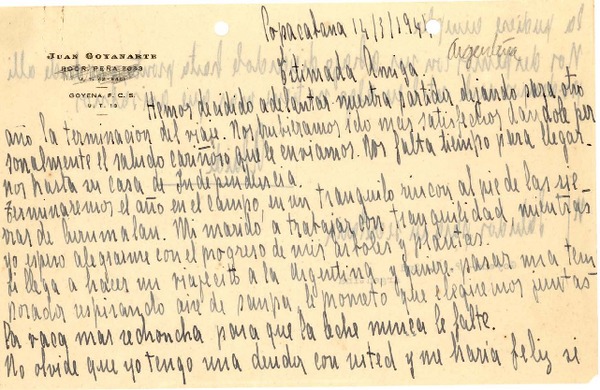 Copacabana 14/3/194
Argentina
JUAN GOYANARTE
RODR. PEÑA 2033
GOYENA, F. C. S.
U. T. 10
Estimada Amiga
Hemos decidido adelantar nuestra partida dejando para otro
año la terminacion del viaje. Nos hubieramos ido mas satisfechos dándole per-
sonalmente el saludo cariñoso que le enviamos. Nos falta tiempo para llegar-
nos hasta su casa de Independencia.
Terminaremos el año en el campo, en un tranquilo rincon al pie de las sie-
rras de Curumalan. Mi marido a trabajar con tranquilidad, mientras
yo espero alegrarme con el progreso de mis arboles y plantas.
Si llega a hacer un viajecito a la Argentina y quiere pasar una tem
porada respirando aire de pampa, le prometo que elegiremos juntas
la vaca mas rechoncha para que la leche nunca le falte.
No olvide que yo tengo una deuda con usted y me haria feliz si